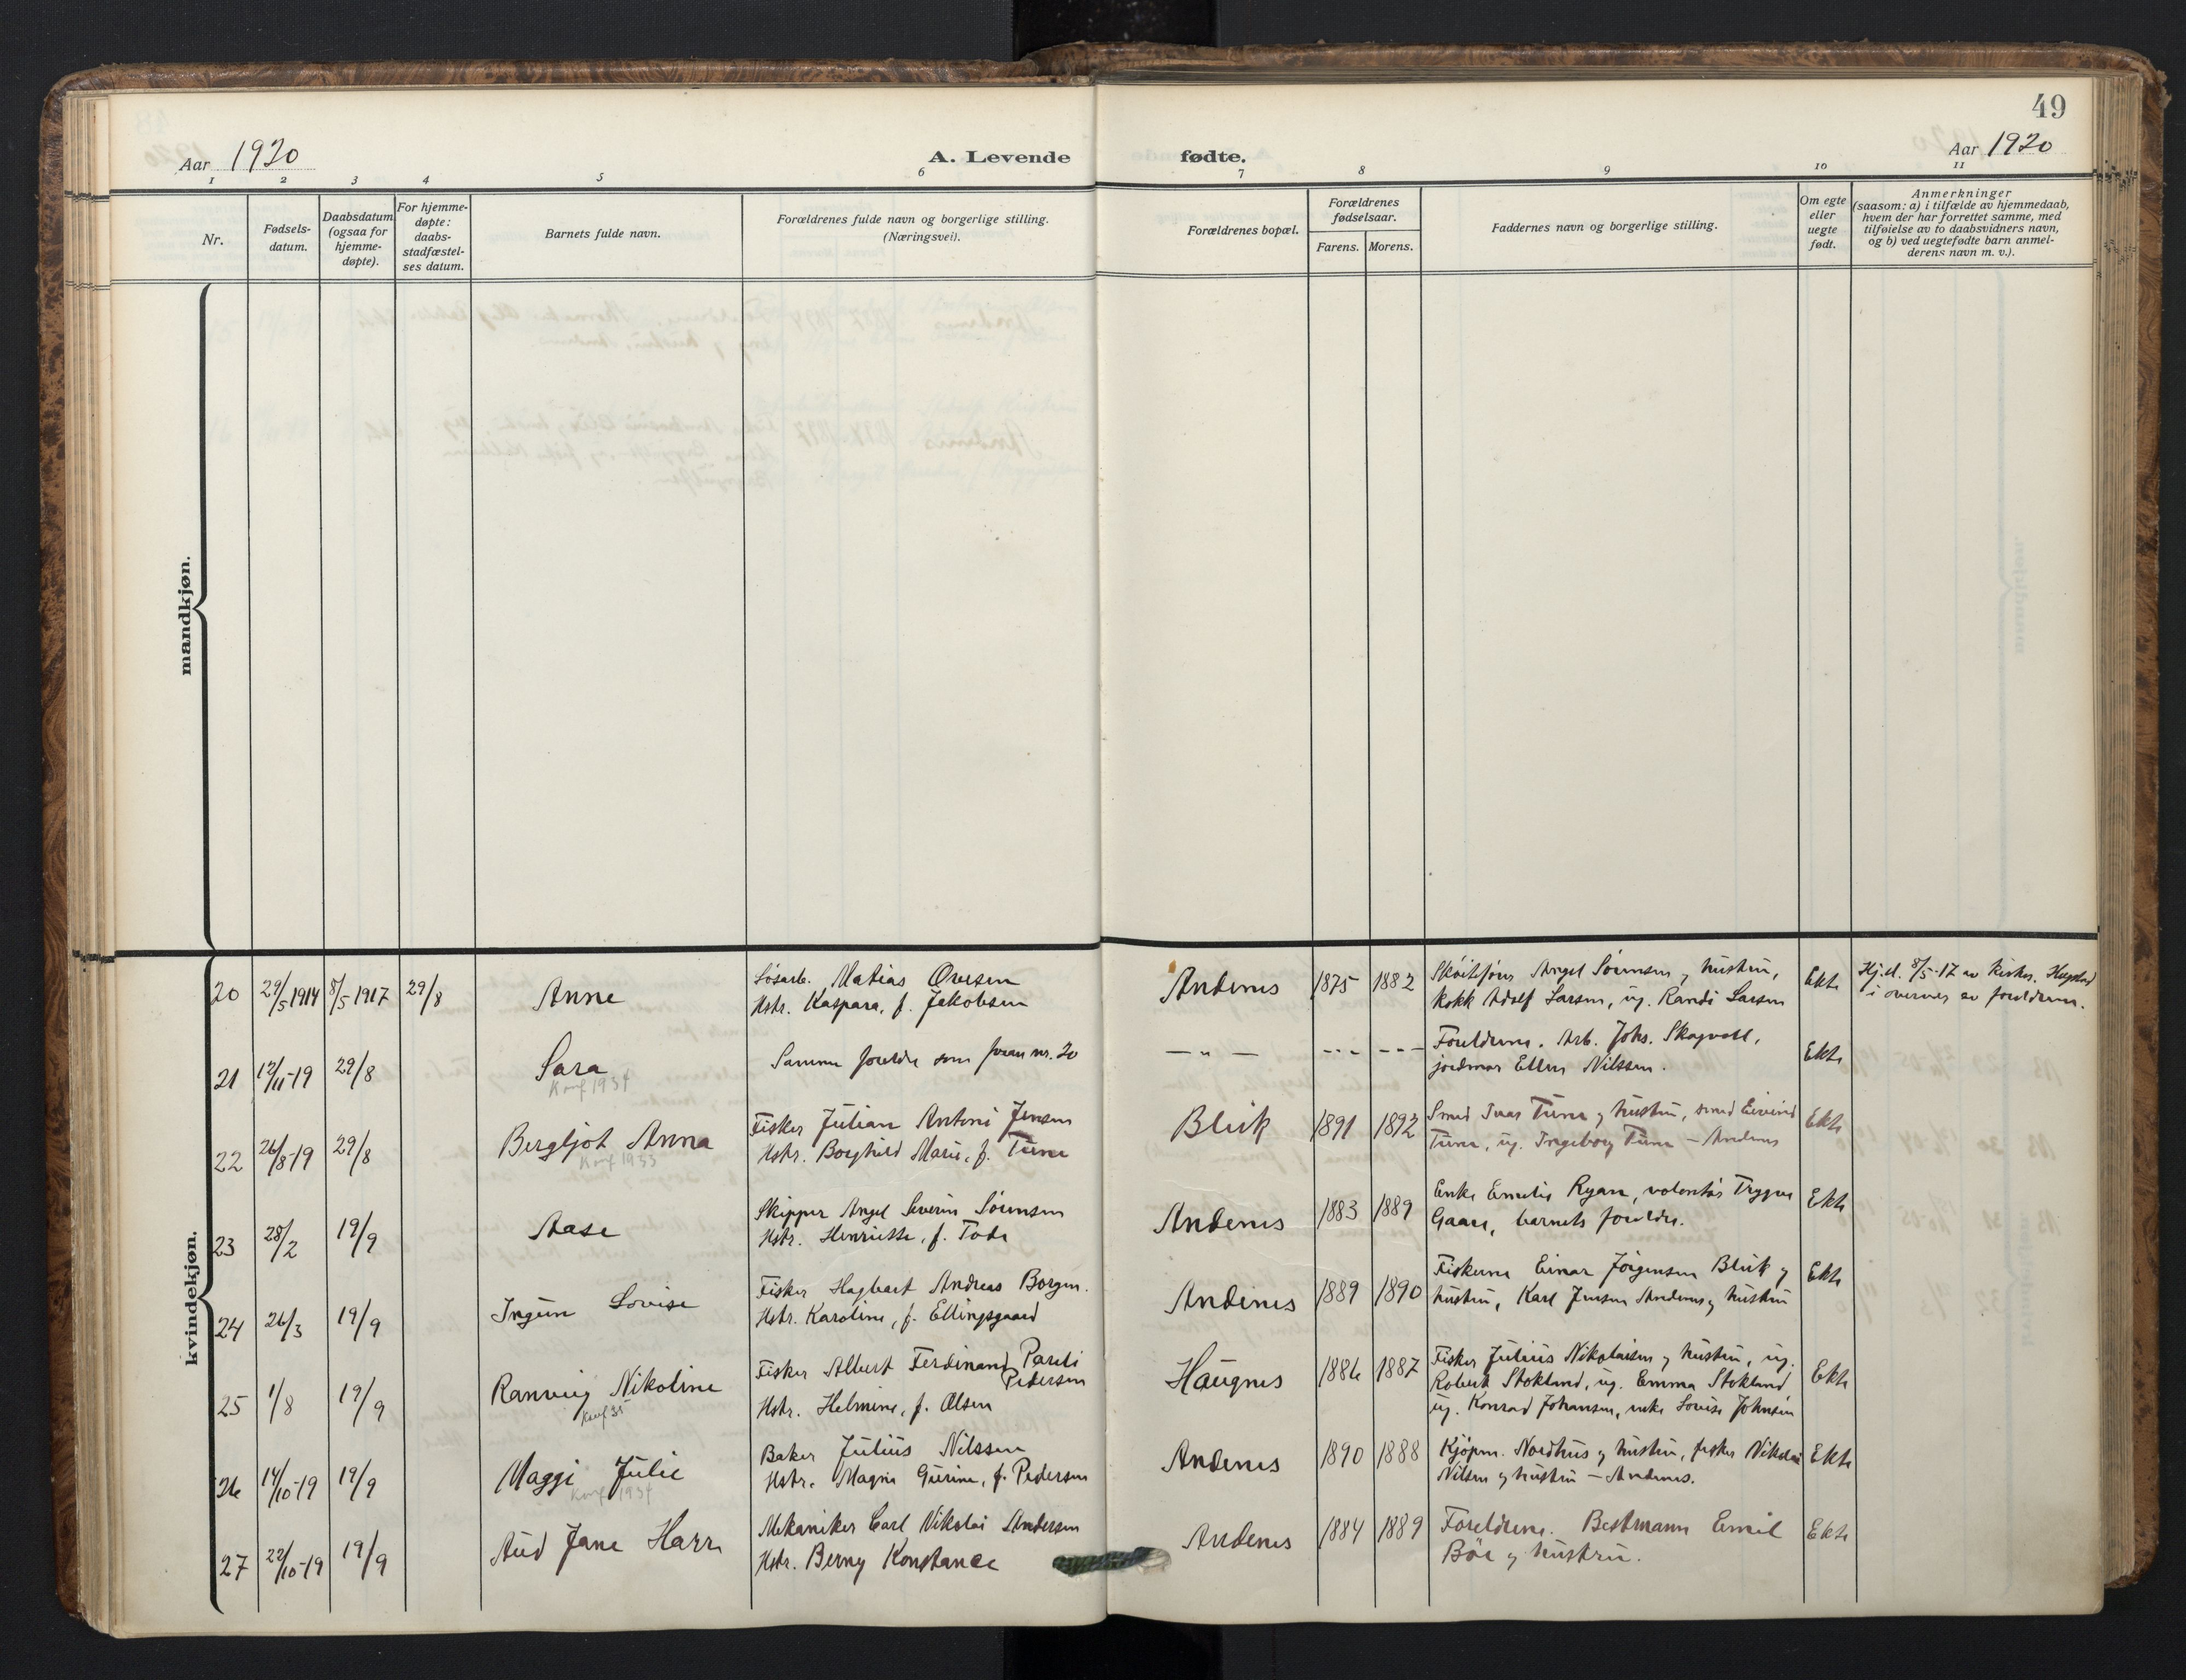 49
Aar 1920
A. Levende fødte.
Aar 1920
1 2 3 4 5 6 7 8 9 10 11
Nr.
Fødsels-
datum.
Daabsdatum
(ogsaa for
hjemme-
døpte).
For hjemme-
døpte:
daabs-
stadfæstel-
ses datum.
Barnets fulde navn.
Forældrenes fulde navn og borgerlige stilling.
(Næringsvei).
Forældrenes bopæl.
Forældrenes
fødselsaar.
Farens. Morens.
Faddernes navn og borgerlige stilling.
Om egte
eller
uegte
født.
Anmerkninger
(saasom: a) i tilfælde av hjemmedaab,
hvem der har forrettet samme, med
tilføielse av to daabsvidners navn,
og b) ved uegtefødte barn anmel-
derens navn m. v.).
mandkjøn.
kvindekjøn.
20 29/5 1914 8/5 1917 29/8 Anne
Løsarb. Matias Ovesen
Hstr. Kaspara, f. Jakobsen
Andenes 1875 1882
Skøitefører Angel Sørensen og hustru,
kokk Adolf Larsen, ug. Randi Larsen
Ekte
Hj.d. 8/5-17 av kirkes. Hagstad
i overvær av foreldrene.
21 12/11-19 29/8 Sara
Konf 1934
Samme foreldre som foran nr. 20
— " — --- ---
Foreldrene. Arb. Johs. Skogvoll,
jordmor Ellen Nilssen.
Ekte
22 26/8-19 29/8 Bergljot Anna
Konf 1933
Fisker Julian Antoni Jensen
Hstr. Borghild Marie, f. Tune
Bleik 1891 1892
Smed Ivar Tune og hustru, smed Eivind
Tune, ug. Ingeborg Tune — Andenes
Ekte
23 28/2 19/9 Aase
Skipper Angel Severin Sørensen
Hstr. Henriette, f. Tode
Andenes 1883 1889
Enke Emelie Ryan, volontør Trygve
Gaare, barnets foreldre.
Ekte
24 26/3 19/9 Ingun Lovise
Fisker Hagbart Andreas Borgen.
Hstr. Karoline, f. Ellingsgaard
Andenes 1889 1890
Fiskerne Einar Jørgensen Bleik og
hustru, Karl Jensen Andenes og hustru
Ekte
25 1/8 19/9 Ranveig Nikoline
Konf 35
Fisker Albert Ferdinand Pareli
Pedersen
Hstr. Helmine, f. Olsen
Haugnes 1886 1887
Fisker Julius Nikolaisen og hustru, ug.
Robert Stokland, ug. Emma Stokland,
ug. Konrad Johansen, enke Lovise Johnsen
Ekte
26 14/10-19 19/9 Maggi Julie
Konf 1934
Baker Julius Nilssen
Hstr. Magna Gurine, f. Pedersen
Andenes 1890 1888
Kjøpm. Nordhus og hustru, fisker Nikolai
Nilsen og hustru — Andenes.
Ekte
27 22/10-19 19/9 Aud Jane Harr
Mekaniker Carl Nikolai Andersen
Hstr. Berny Konstance
Andenes 1884 1889
Foreldrene. Bestmann Emil
Böe og hustru.
Ekte